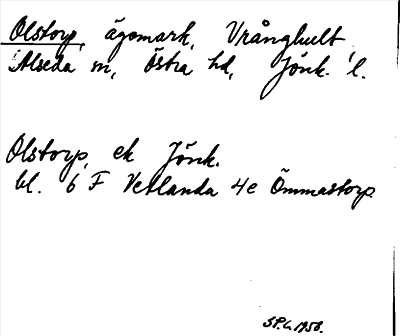 Olstorp, ägomark, Vrånghult
Alseda sn, Östra hd, Jönk. l.
Olstorp, ek Jönk.
bl. 6 F Vetlanda 4e Ömmastorp
1958.